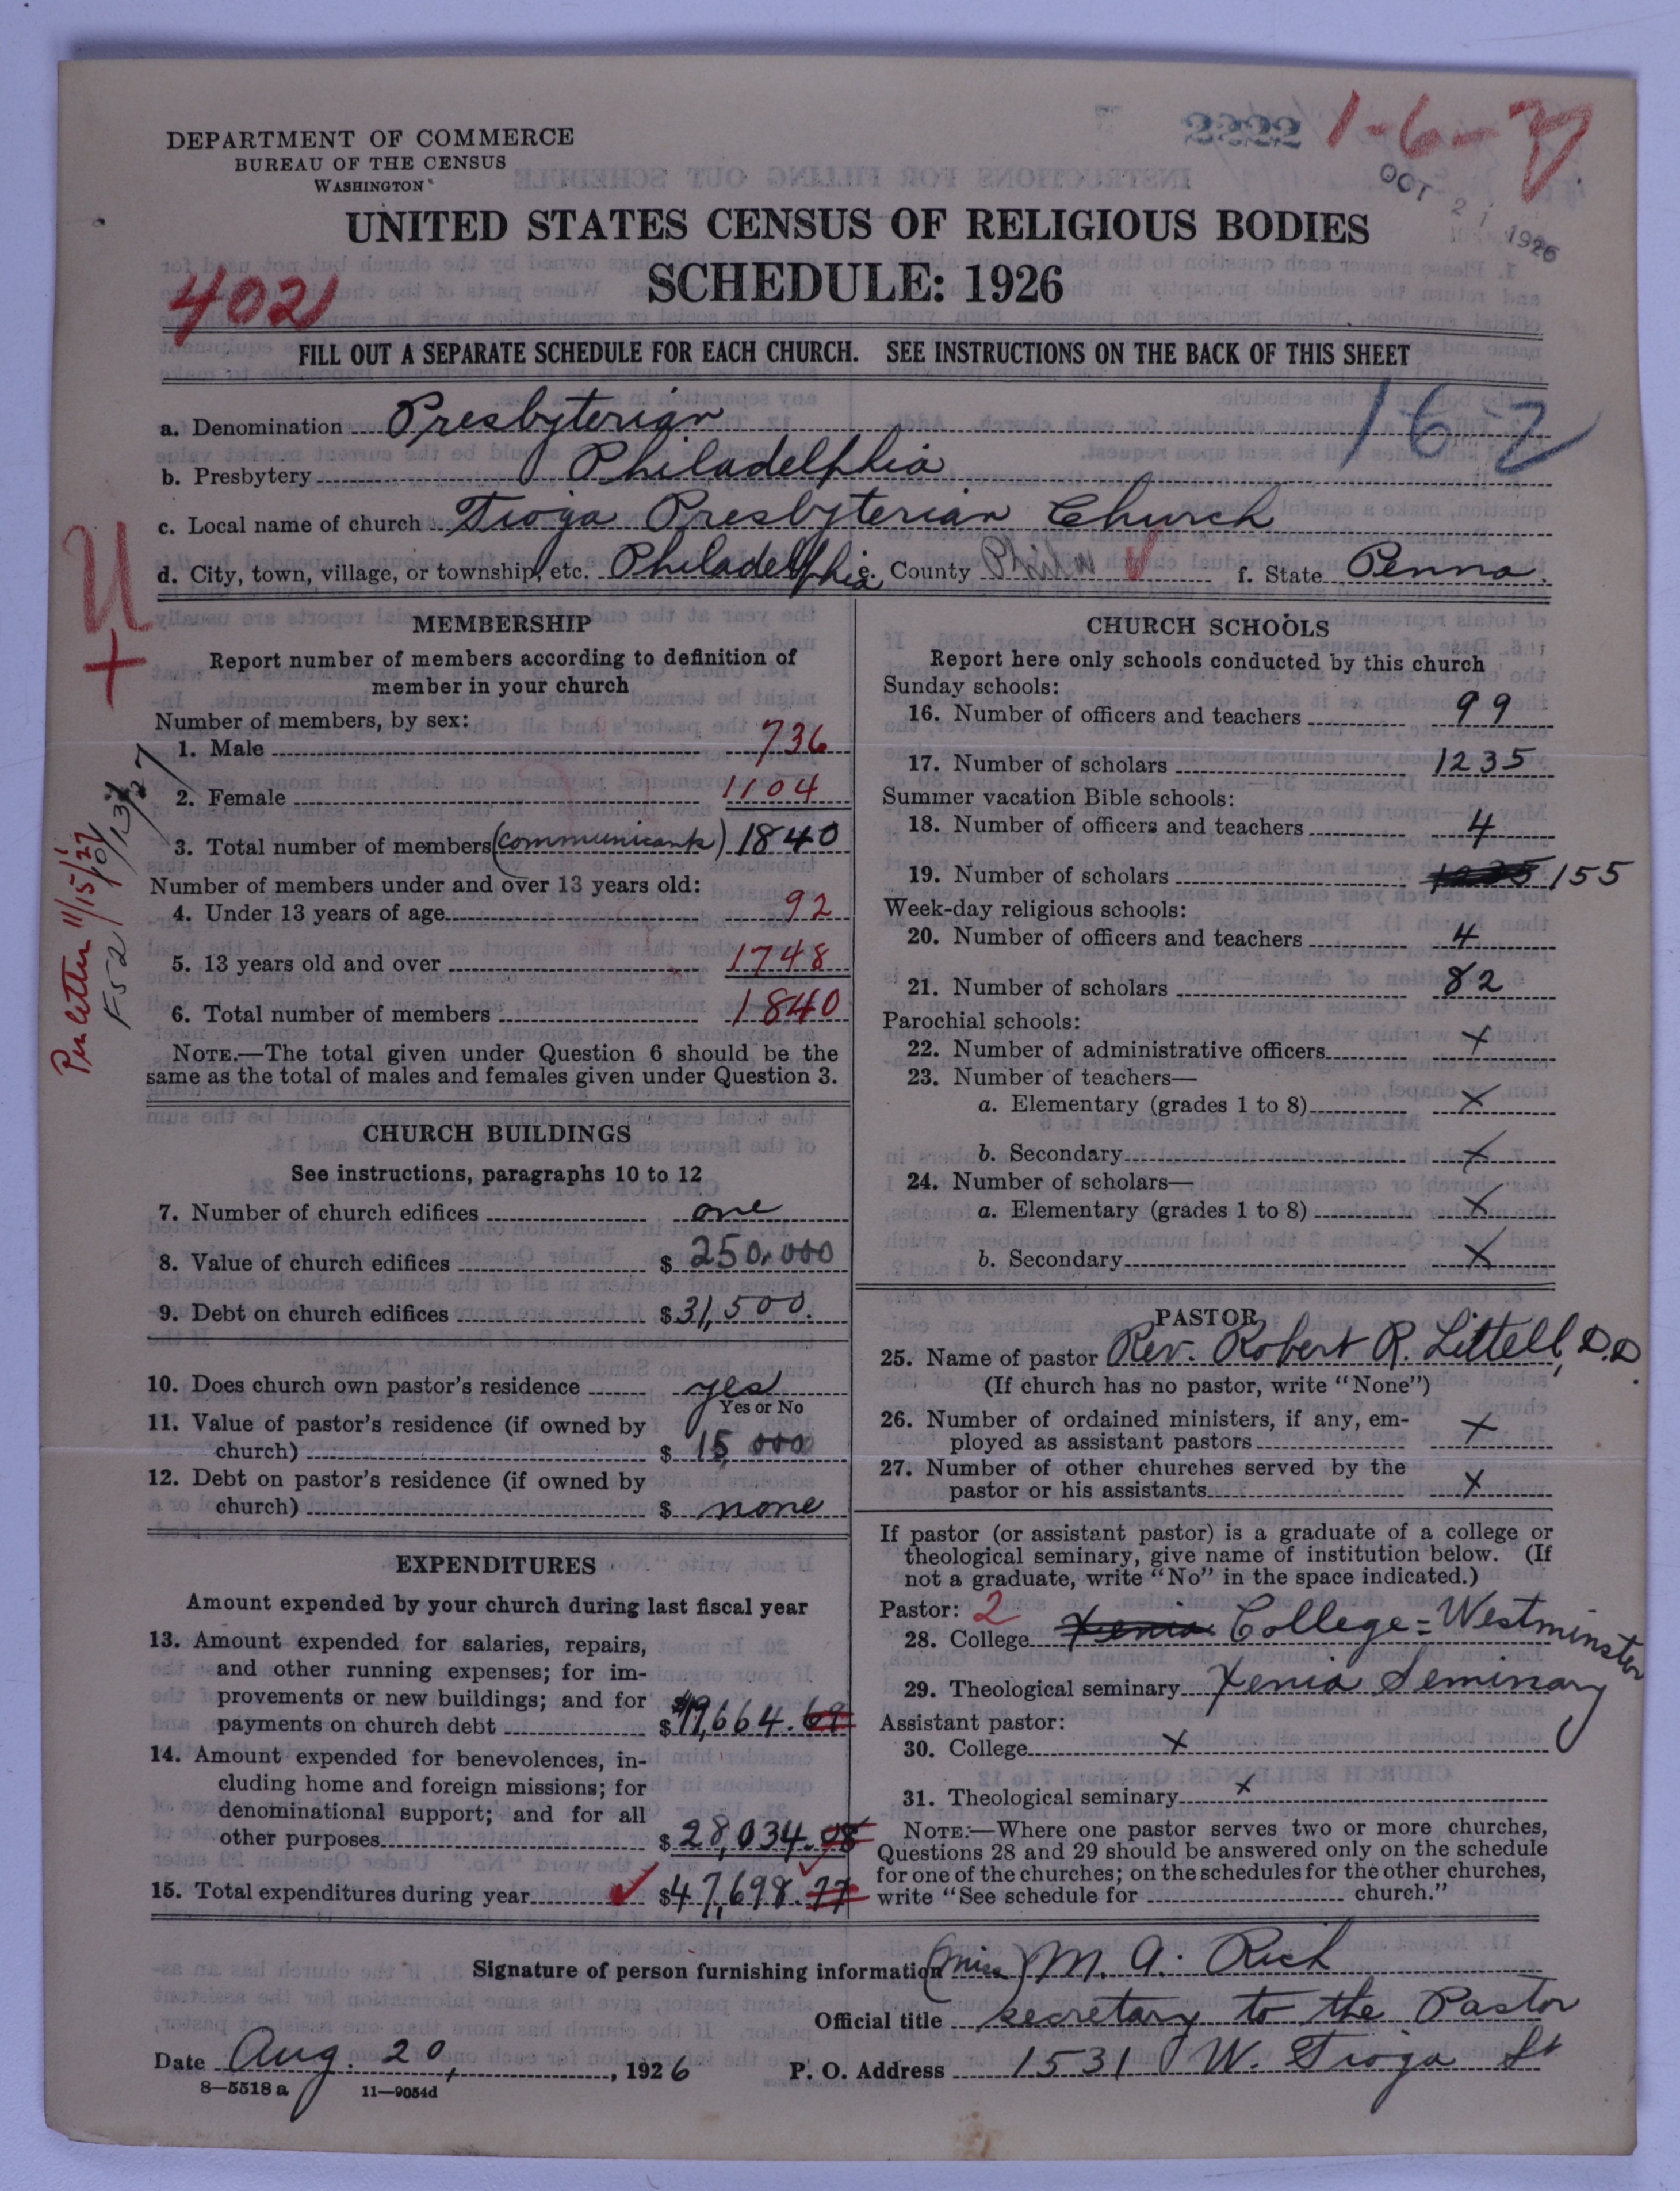 DEPARTMENT OF COMMERCE
BUREAU OF THE CENSUS
WASHINGTON
2222
1-6-
OCT 21 1926
UNITED STATES CENSUS OF RELIGIOUS BODIES
SCHEDULE: 1926
4021
FILL OUT A SEPARATE SCHEDULE FOR EACH CHURCH. SEE INSTRUCTIONS ON THE BACK OF THIS SHEET
16-2
a. Denomination Presbyterian
b. Presbytery Philadelphia
c. Local name of church Tioga Presbyterian Church
d. City, town, village, or township, etc. Philadelphia e. County Phila f. State Penna.
U
+
Per letter 11/15/27
F52
MEMBERSHIP
Report number of members according to definition of
member in your church
Number of members, by sex:
1. Male 736
2. Female 1104
3. Total number of members (communicants) 1840
Number of members under and over 13 years old:
4. Under 13 years of age 92
5. 13 years old and over 1748
6. Total number of members 1840
NOTE.—The total given under Question 6 should be the
same as the total of males and females given under Question 3.
CHURCH BUILDINGS
See instructions, paragraphs 10 to 12
7. Number of church edifices one
8. Value of church edifices $ 250,000
9. Debt on church edifices $ 31,500.
10. Does church own pastor's residence yes
Yes or No
11. Value of pastor's residence (if owned by
church) $ 15 000
12. Debt on pastor's residence (if owned by
church) $ none
EXPENDITURES
Amount expended by your church during last fiscal year
13. Amount expended for salaries, repairs,
and other running expenses; for im-
provements or new buildings; and for
payments on church debt $ 19,664.69
14. Amount expended for benevolences, in-
cluding home and foreign missions; for
denominational support; and for all
other purposes $ 28,034.08
15. Total expenditures during year $ 47,698.77
CHURCH SCHOOLS
Report here only schools conducted by this church
Sunday schools:
16. Number of officers and teachers 99
17. Number of scholars 1235
Summer vacation Bible schools:
18. Number of officers and teachers 4
19. Number of scholars 1235 155
Week-day religious schools:
20. Number of officers and teachers 4
21. Number of scholars 82
Parochial schools:
22. Number of administrative officers x
23. Number of teachers—
a. Elementary (grades 1 to 8) x
b. Secondary x
24. Number of scholars—
a. Elementary (grades 1 to 8) x
b. Secondary x
PASTOR
25. Name of pastor Rev. Robert R. Littell, D.D.
(If church has no pastor, write "None")
26. Number of ordained ministers, if any, em-
ployed as assistant pastors x
27. Number of other churches served by the
pastor or his assistants x
If pastor (or assistant pastor) is a graduate of a college or
theological seminary, give name of institution below. (If
not a graduate, write "No" in the space indicated.)
Pastor: 2
28. College Xenia College = Westminster
29. Theological seminary Xenia Seminary
Assistant pastor:
30. College x
31. Theological seminary x
NOTE.—Where one pastor serves two or more churches,
Questions 28 and 29 should be answered only on the schedule
for one of the churches; on the schedules for the other churches,
write "See schedule for church."
Signature of person furnishing information (Miss) M. A. Rich
Official title Secretary to the Pastor
Date Aug. 20, 1926 P. O. Address 1531 W. Tioga St
8—5518a 11—9054d